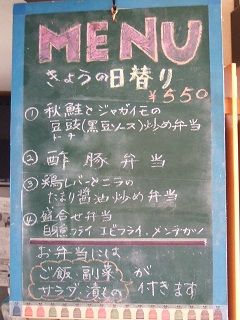 MENU
きょうの日替り
¥550
① 秋鮭とジャガイモの
豆鼓(黒豆ソース)炒め弁当
トーチ
② 酢豚弁当
③ 鶏レバーとニラの
たまり醤油炒め弁当
④ 盛合せ弁当
白身フライ エビフライ. メンチカツ
お弁当には
ご飯 副菜 が
サラダ・漬もの 付きます